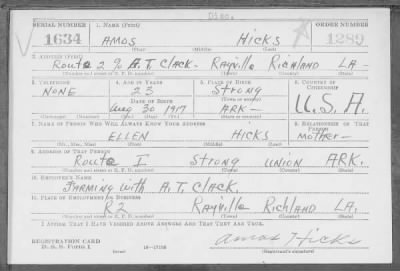 Disc.
SERIAL NUMBER 1. NAME (Print) ORDER NUMBER
1634 AMOS HICKS 1289
(First) (Middle) (Last)
2. ADDRESS (Print)
Route 2 % A.T. Clack - Rayville Richland LA -
(Number and street or R. F. D. number) (Town) (County) (State)
3. TELEPHONE 4. AGE IN YEARS 5. PLACE OF BIRTH 6. COUNTRY OF CITIZENSHIP
NONE 23 Strong U.S.A.
DATE OF BIRTH (Town or county)
Aug 30 1917 ARK -
(Mo.) (Day) (Yr.) (State or country)
7. NAME OF PERSON WHO WILL ALWAYS KNOW YOUR ADDRESS 8. RELATIONSHIP OF THAT PERSON
ELLEN HICKS Mother -
(Mr., Mrs., Miss) (First) (Middle) (Last)
9. ADDRESS OF THAT PERSON
Route I Strong Union ARK.
(Number and street or R. F. D. number) (Town) (County) (State)
10. EMPLOYER'S NAME
Farming with A.T. Clack.
11. PLACE OF EMPLOYMENT OR BUSINESS
R2 Rayville Richland LA.
(Number and street or R. F. D. number) (Town) (County) (State)
I AFFIRM THAT I HAVE VERIFIED ABOVE ANSWERS AND THAT THEY ARE TRUE.
REGISTRATION CARD
D. S. S. Form 1 (over) 16—17105 Amos Hicks
(Registrant's signature)